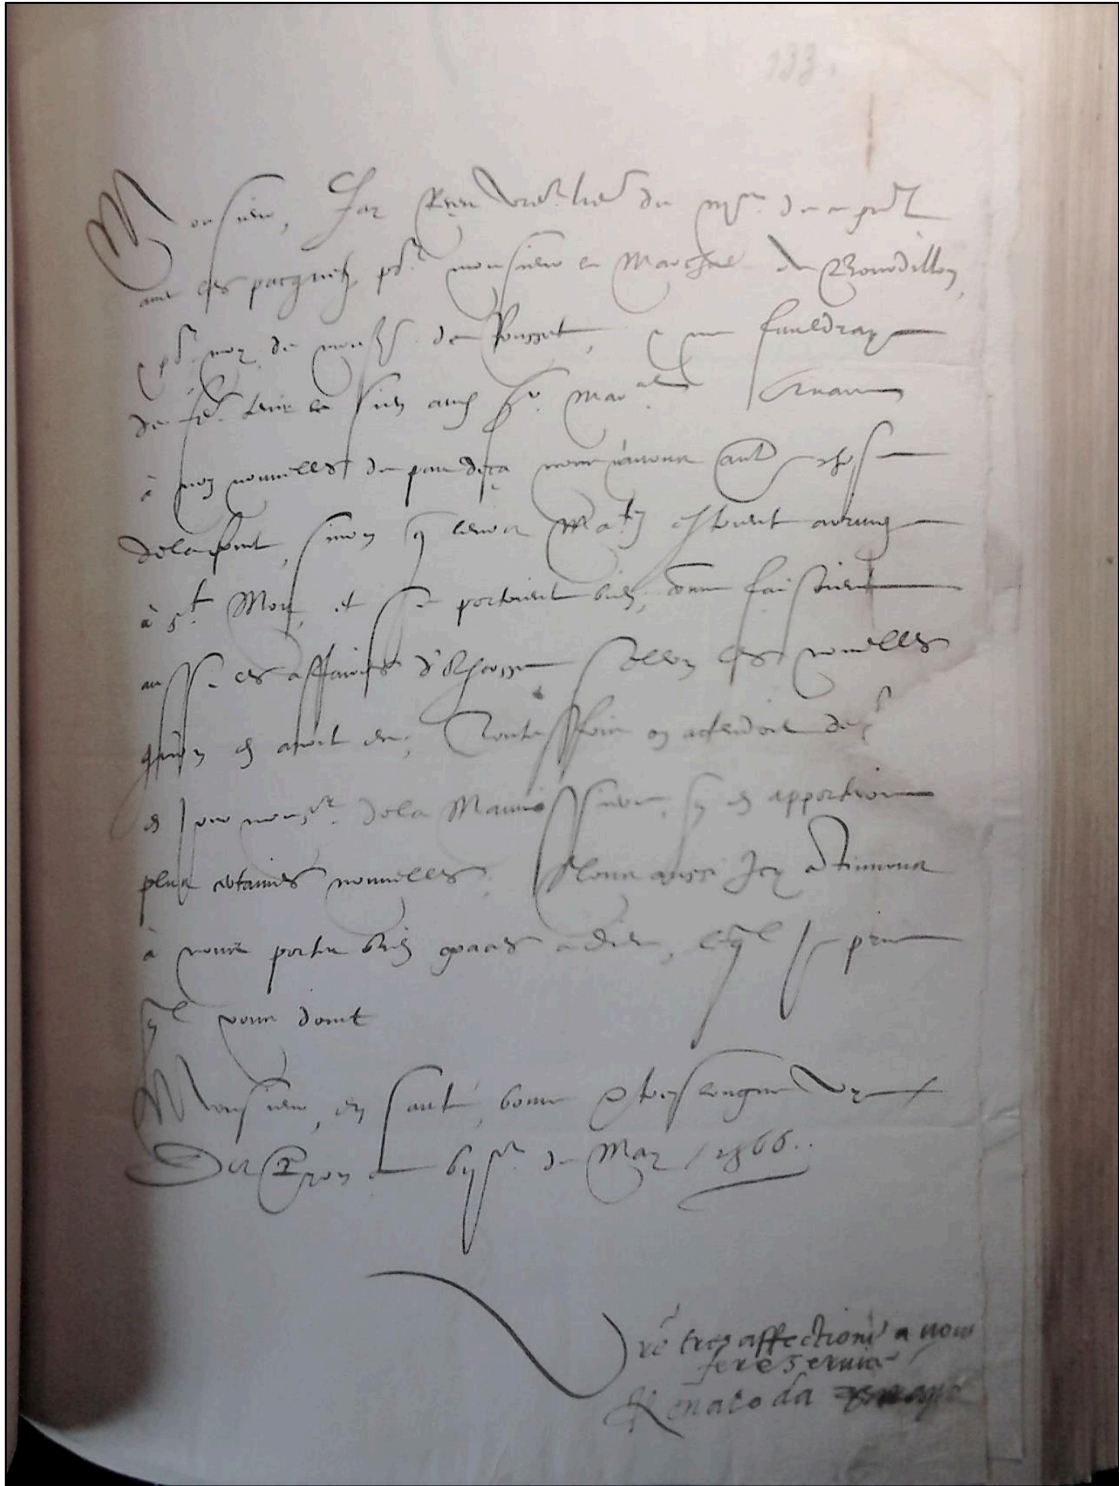 133.
Monsieur, J'ay receu vre lre du
avec les pacquetz po.r monsieur le Mar.chal de Bourdillon,
po.r moy, de mons.r de, e ne fauldray
de fe.r tenir le sien and S.r Mar.al
à noz nouvelles de par deça nous n'avons aut chose
dela court, sinon q leurs Ma.tez estoient arrivez
à S.t Mor, et se portoient bien, comme faisoient
aussi les affaires d'Escosse sellon les nouvelles
qu'on en avoit eu, Toutesfois on actendoit
en Jour mons.r dela Mauvissiere, qui en apportera
plus certaines nouvelles. Nous aussi Icy continuons
à nous porter bien graces a dieu, leq.l Je prie
q.l vous doint
Monsieur, en santé bonne & longue vye
De Lyon ce de May 1566..
Vre tres affectioné a vous
fere service
Renato da